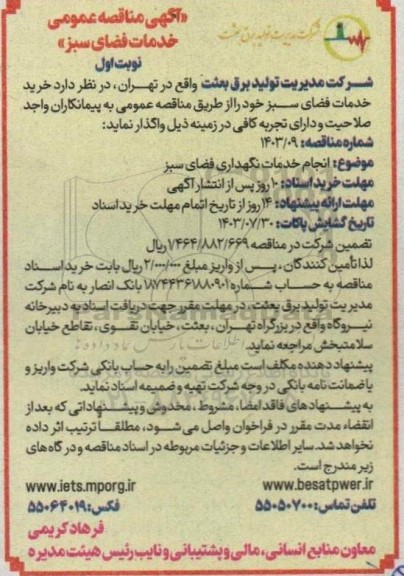 «آگهی مناقصه عمومی
خدمات فضای سبز»
شرکت مدیریت تولید برق بعثت
نوبت اول
شرکت مدیریت تولید برق بعثت واقع در تهران، در نظر دارد خرید
خدمات فضای سبز خود را از طریق مناقصه عمومی به پیمانکاران واجد
صلاحیت و دارای تجربه کافی در زمینه ذیل واگذار نماید:
شماره مناقصه: ۱۴۰۳/۰۹
موضوع: انجام خدمات نگهداری فضای سبز
مهلت خرید اسناد: ۱۰ روز پس از انتشار آگهی
مهلت ارائه پیشنهاد: ۱۴ روز از تاریخ اتمام مهلت خرید اسناد
تاریخ گشایش پاکات: ۱۴۰۳/۰۷/۳۰
تضمین شرکت در مناقصه ۷۴۶۴/۸۸۲/۶۶۹ ریال
لذا تأمین کنندگان، پس از واریز مبلغ ۲/۰۰۰/۰۰۰ ریال بابت خرید اسناد
مناقصه به حساب شماره ۱۸۷۴۴۳۶۱۸۸۰۹۰۱ بانک انصار به نام شرکت
مدیریت تولید برق بعثت، در مهلت مقرر جهت دریافت اسناد به دبیرخانه
نیروگاه واقع در بزرگراه تهران، بعثت، خیابان تقوی، تقاطع خیابان
سلامتبخش مراجعه نماید.
پیشنهاد دهنده مکلف است مبلغ تضمین را به حساب بانکی شرکت واریز و
یا ضمانت نامه بانکی در وجه شرکت تهیه و ضمیمه اسناد نماید.
به پیشنهادهای فاقد امضا، مشروط، مخدوش و پیشنهاداتی که بعد از
انقضاء مدت مقرر در فراخوان واصل می شود، مطلقا ترتیب اثر داده
نخواهد شد. سایر اطلاعات و جزئیات مربوطه در اسناد مناقصه و درگاه های
زیر مندرج است.
www.besatpwer.ir www.iets.mporg.ir
تلفن تماس: ۵۵۰۵۰۷۰۰ فکس: ۵۵۰۶۴۰۱۹
فرهاد کریمی
معاون منابع انسانی، مالی و پشتیبانی و نایب رئیس هیئت مدیره